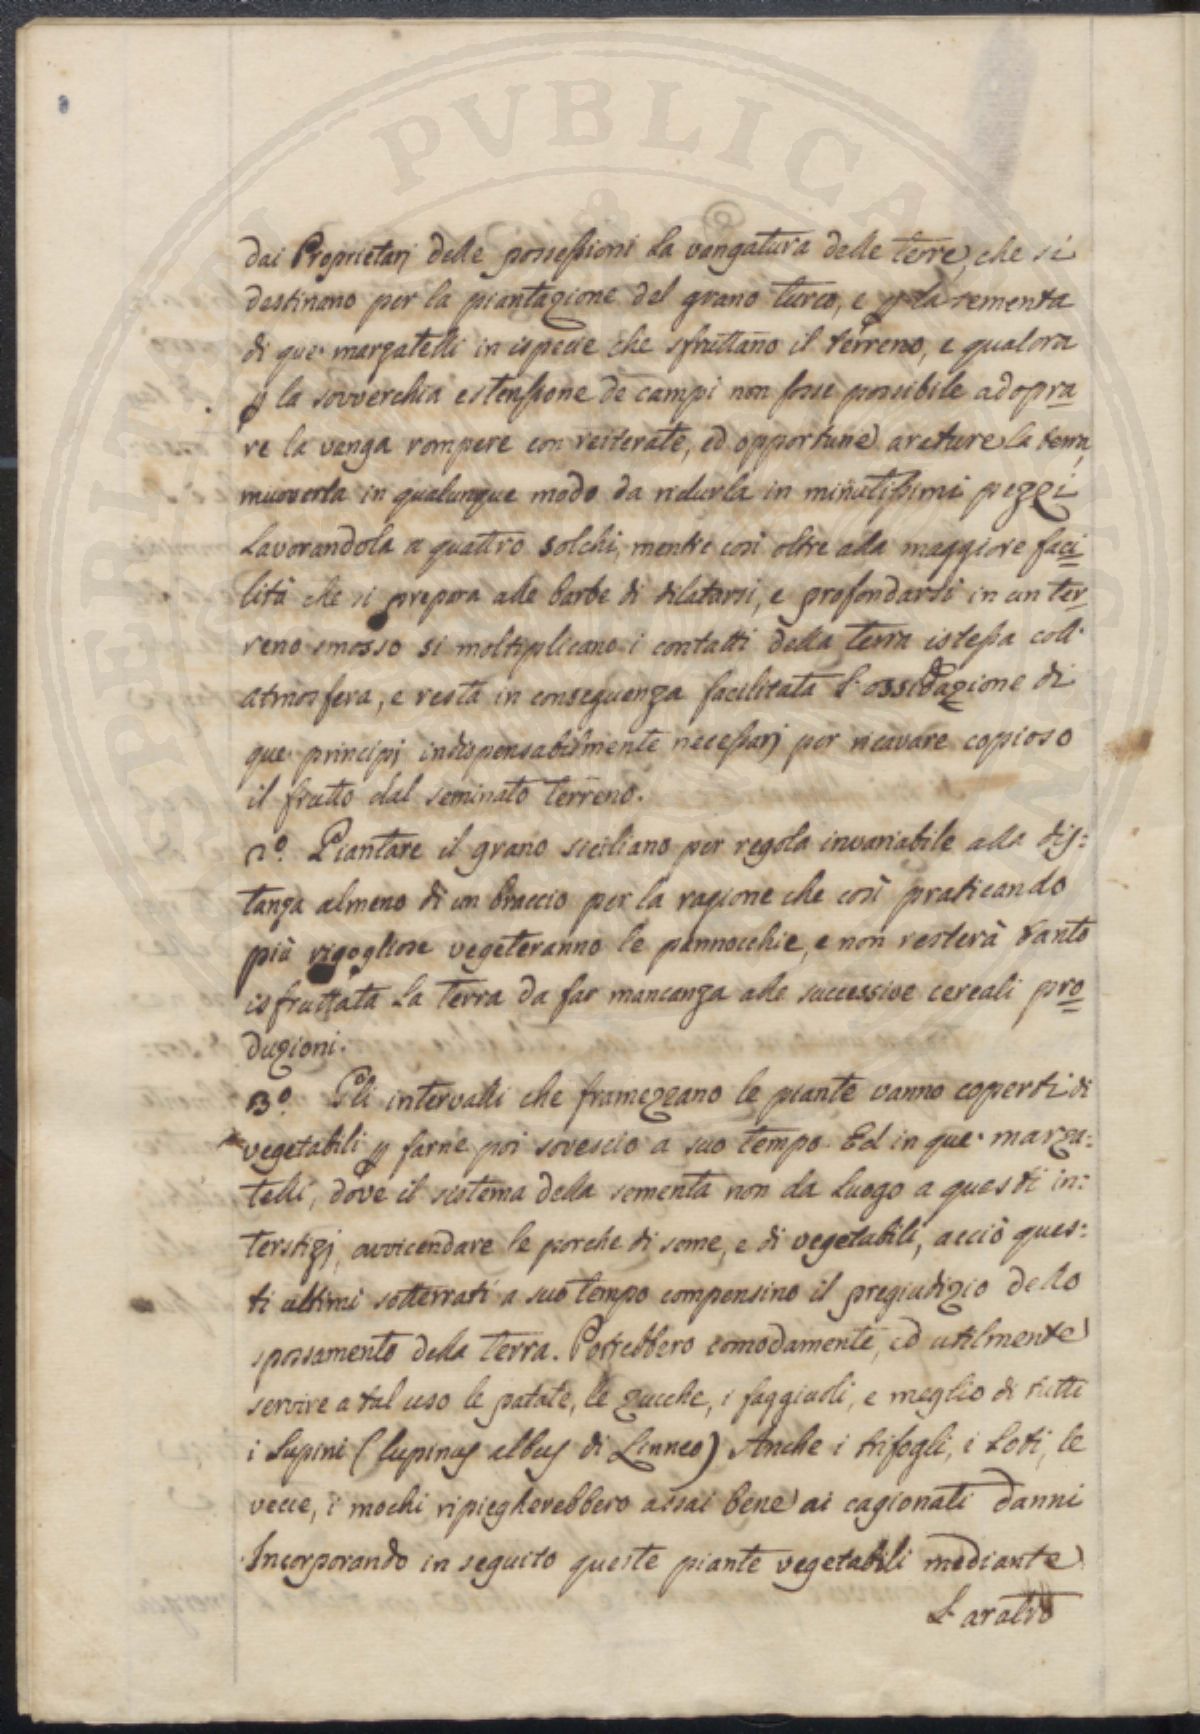 dai Proprietarj delle possessioni la vangatura delle terre, che si
destinano per la piantazione del grano turco, e p la sementa
di que' marzatelli in ispecie che sfruttano il terreno, e qualora
p la sovverchia estensione de campi non fosse possibile adopra
re la vanga rompere con reiterate, ed opportune arature la terra,
muoverla in qualunque modo da ridurla in minutissimi pezzi
lavorandola a quattro solchi, mentre così oltre alla maggiore faci
lità che si prepara alle barbe di dilatarsi, e profondarsi in un ter
reno smosso si moltiplicano i contatti della terra istessa coll'
atmosfera, e resta in conseguenza facilitata l'ossidazione di
que' principj indispensabilmente necessarj per ricavare copioso
il frutto dal seminato terreno.
2º. Piantare il grano siciliano per regola invariabile alla dis:
tanza almeno di un braccio per la ragione che così praticando
più rigogliose vegeteranno le pannocchie, e non resterà tanto
isfruttata la terra da far mancanza alle successive cereali pro
duzioni.
3º. Gli intervalli che framezzano le piante vanno coperti di
vegetabili p farne poi sovescio a suo tempo. Ed in que' marza:
telli, dove il sistema della sementa non da luogo a questi in:
terstizj, avvicendare le porche di seme, e di vegetabili, acciò ques:
ti ultimi sotterrati a suo tempo compensino il pregiudizio dello
spossamento della terra. Potrebbero comodamente, ed utilmente
servire a tal uso le patate, le zucche, i faggiuoli, e meglio di tutti
i Lupini (lupinus albus di Linneo) Anche i trifogli, i loti, le
vecce, i mochi ripiegherebbero assai bene ai cagionati danni
Incorporando in seguito queste piante vegetabili mediante
l'aratro
PERITATI PVBLICAE